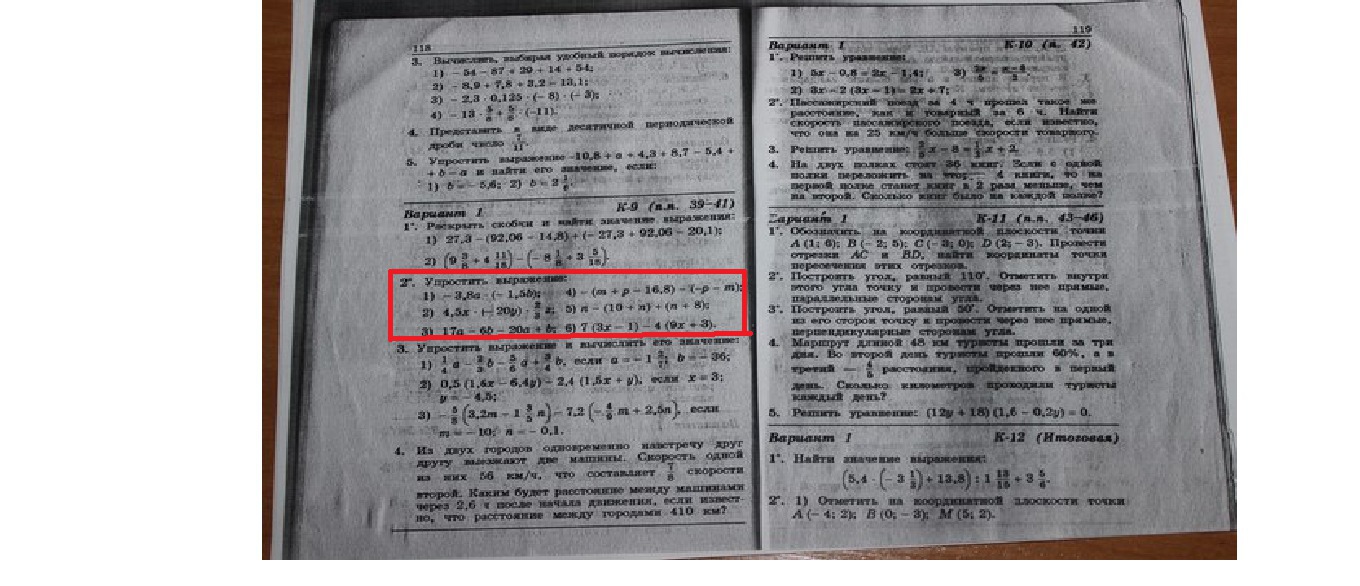 118
3. Вычислить, выбирая удобный порядок вычисления:
1) – 54 – 87 + 20 + 14 + 54;
2) – 8,9 + 7,8 + 3,2 – 13,1;
3) – 2,3 · 0,125 · (– 8) · (– 3);
4) – 13 · 5/6 + 5/6 · (–11).
4. Представить в виде десятичной периодической
дроби число
5. Упростить выражение –10,8 + a + 4,3 + 8,7 – 5,4 +
+ b – a и найти его значение, если:
1) b = – 5,6; 2) b = 2 1/6.
Вариант 1 К-9 (п.п. 39–41)
1°. Раскрыть скобки и найти значение выражения:
1) 27,3 – (92,06 – 14,8) + (– 27,3 + 92,06 – 20,1);
2)
2°. Упростить выражение:
1) – 3,8a · (– 1,5b); 4) – (m + p – 16,8) – (–p – m);
2) 4,5x · (– 20y) · z; 5) n – (16 + n) + (n + 8);
3) 17a – 6b – 20a + b; 6) 7 (3x – 1) – 4 (9x + 3).
3. Упростить выражение и вычислить его значение:
1) 1/4 a – 2/3 b – 5/6 a + 3/4 b, если b = – 36;
2) 0,5 (1,6x – 6,4y) – 2,4 (1,5x + y), если x = 3;
y = – 4,5;
3) – 5/8 (3,2m – 1 3/5 n) – 7,2 (– 4/9 m + 2,5n), если
m = – 10; n = – 0,1.
4. Из двух городов одновременно навстречу друг
другу выезжают две машины. Скорость одной
из них 56 км/ч, что составляет 7/8 скорости
второй. Каким будет расстояние между машинами
через 2,6 ч после начала движения, если извест-
но, что расстояние между городами 410 км?
119
Вариант 1 К-10 (п. 42)
1°. Решить уравнение:
1) 5x – 0,8 = 2x – 1,4; 3)
2) 3x – 2 (3x – 1) = 2x + 7;
2°. Пассажирский поезд за 4 ч прошел такое же
расстояние, как и товарный за 6 ч. Найти
скорость пассажирского поезда, если известно,
что она на 25 км/ч больше скорости товарного.
3. Решить уравнение: x – 8 = x + 2.
4. На двух полках стоят 36 книг. Если с одной
полки переложить на 4 книги, то на
первой полке станет книг в 2 раза меньше, чем
на второй. Сколько книг было на каждой полке?
Вариант 1 К-11 (п.п. 43–46)
1°. Обозначить на координатной плоскости точки
A (1; 6); B (– 2; 5); C (– 3; 0); D (2; – 3). Провести
отрезки AC и BD, найти координаты точки
пересечения этих отрезков.
2°. Построить угол, равный 110°. Отметить внутри
этого угла точку и провести через нее прямые,
параллельные сторонам угла.
3°. Построить угол, равный 50°. Отметить на одной
из его сторон точку и провести через нее прямые,
перпендикулярные сторонам угла.
4. Маршрут длиной 48 км туристы прошли за три
дня. Во второй день туристы прошли 60%, а в
третий — 4/5 расстояния, пройденного в первый
день. Сколько километров проходили туристы
каждый день?
5. Решить уравнение: (12y + 18) (1,6 – 0,2y) = 0.
Вариант 1 К-12 (Итоговая)
1°. Найти значение выражения:
(5,4 · (– 3 1/3) + 13,8) : 1 13/16 + 3 5/6.
2°. 1) Отметить на координатной плоскости точки
A (– 4; 2); B (0; – 3); M (5; 2).